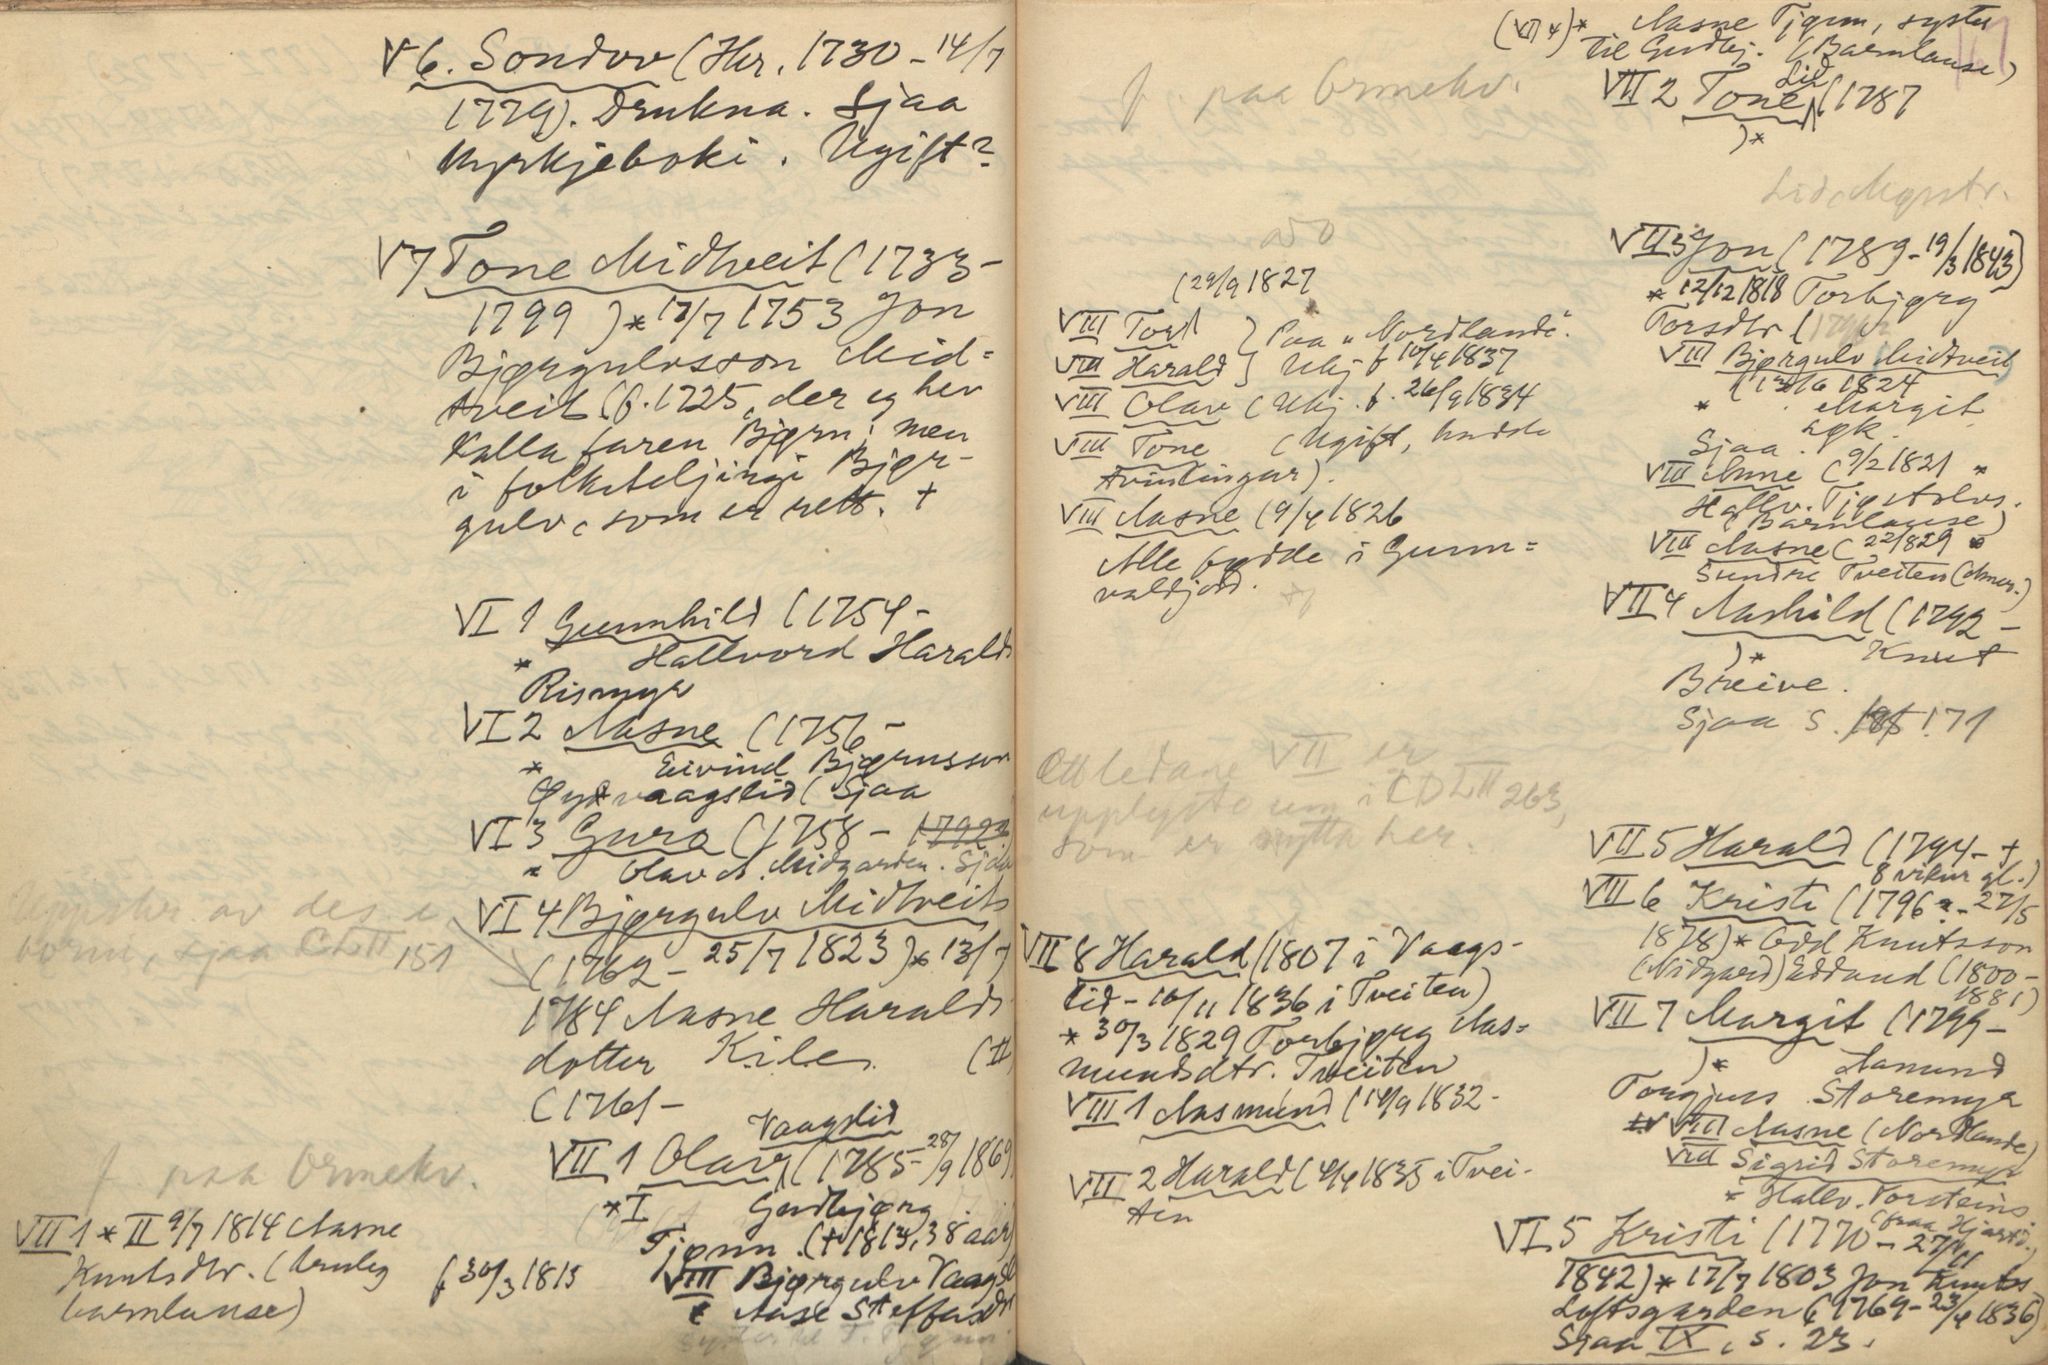 V 6. Sondov (Hr. 1730 - 14/7
1779). Drukna. Sjaa
Kyrkjeboki. Ugift?
V 7 Tone Midtveit (1733-
1799) * 17/7 1753 Jon
Bjørgulvsson Mid=
tveit (f. 1725, der eg hev
kalla faren Bjørn; men
i folketeljingi Bjør-
gulv, som er rett. +
VI 1 Gunnhild (1754-
* Hallvord Haralds
Rismyr
VI 2 Aasne (1756-
* Eivind Bjørnsson
Øyvaagslid (Sjaa
VI 3 Guro (1758 - 1792?)
* Olav A. Midgarden. Sjaa
VI 4 Bjørgulv Midtveit
av des
borni, sjaa CLII 151
(1762 - 25/7 1823) * 13/7
1784 Aasne Haralds
dotter Kile. (II
(1761-
Vaagslid
VII 1 Olav (1785 - 28/9 1869)
*I Gudbjørg
Tjønn. (+ 1813, 38 aar)
f. paa Ormekv.
VII 1 * II 9/7 1814 Aasne
Knutsdtr. (truleg
barnlause)
f 30/3 1815
VIII Bjørgulv Vaagsl
* Aase Steffensdtr
syster til T. Tjønn.
f. paa Ormekv.
(29/9 1827
VIII Tord } Paa "Nordlande".
VIII Harald } Ukj f 10/4 1837
VIII Olav (Ukj. f. 26/9 1834
VIII Tone (Ugift, hadde
tvinlingar).
VIII Aasne (9/4 1826
Alle fødde i Gunn=
valdjord.
Ættledane VII er
upplyste um i CDLII 263,
som er nytta her.
VII 8 Harald (1807 i Vaags-
lid - 16/11 1836 i Tveiten)
* 30/3 1829 Torbjørg Aas=
mundsdtr. Tveiten
VIII 1 Aasmund (14/9 1832 -
VIII 2 Harald (4/4 1835 i Tvei-
ten
(VII 4)* Aasne Tjønn, syster
til Gudbj. (Barnlause)
VII 2 Tone Lid (1787
)*
Lid, Møsstr.
VII 3 Jon (1789 - 19/3 1843)
* 12/12 1818 Torbjørg
Torsdtr (
VIII Bjørgulv Midtveit
(13/6 1824
* Margit
Sjaa
VIII Anne (9/2 1821 *
Hallv. Tjøstolvs.
(Barnlause)
VIII Aasne (22/829 *
Sundre Tveiten (Amer.)
VII 4 Aashild (1792 -
)* Knut
Breive.
Sjaa s. 171
VII 5 Harald (1794 - +
8 vikur gl.)
VII 6 Kristi (1796? - 27/5
1878) * Odd Knutsson
(Nidgard) Edland (1800 -
1881)
VII 7 Margit (1799 -
)* Aamund
Torgjus Storemyr
VIII Aasne (Nordlande)
VIII Sigrid Storemyr
* Hallv. Torsteins
(fraa Hjartd.)
VI 5 Kristi (1770 - 27/11
1842) * 17/7 1803 Jon Knuts
Loftsgarden (1769 - 23/4 1836)
Sjaa IX, s. 23.